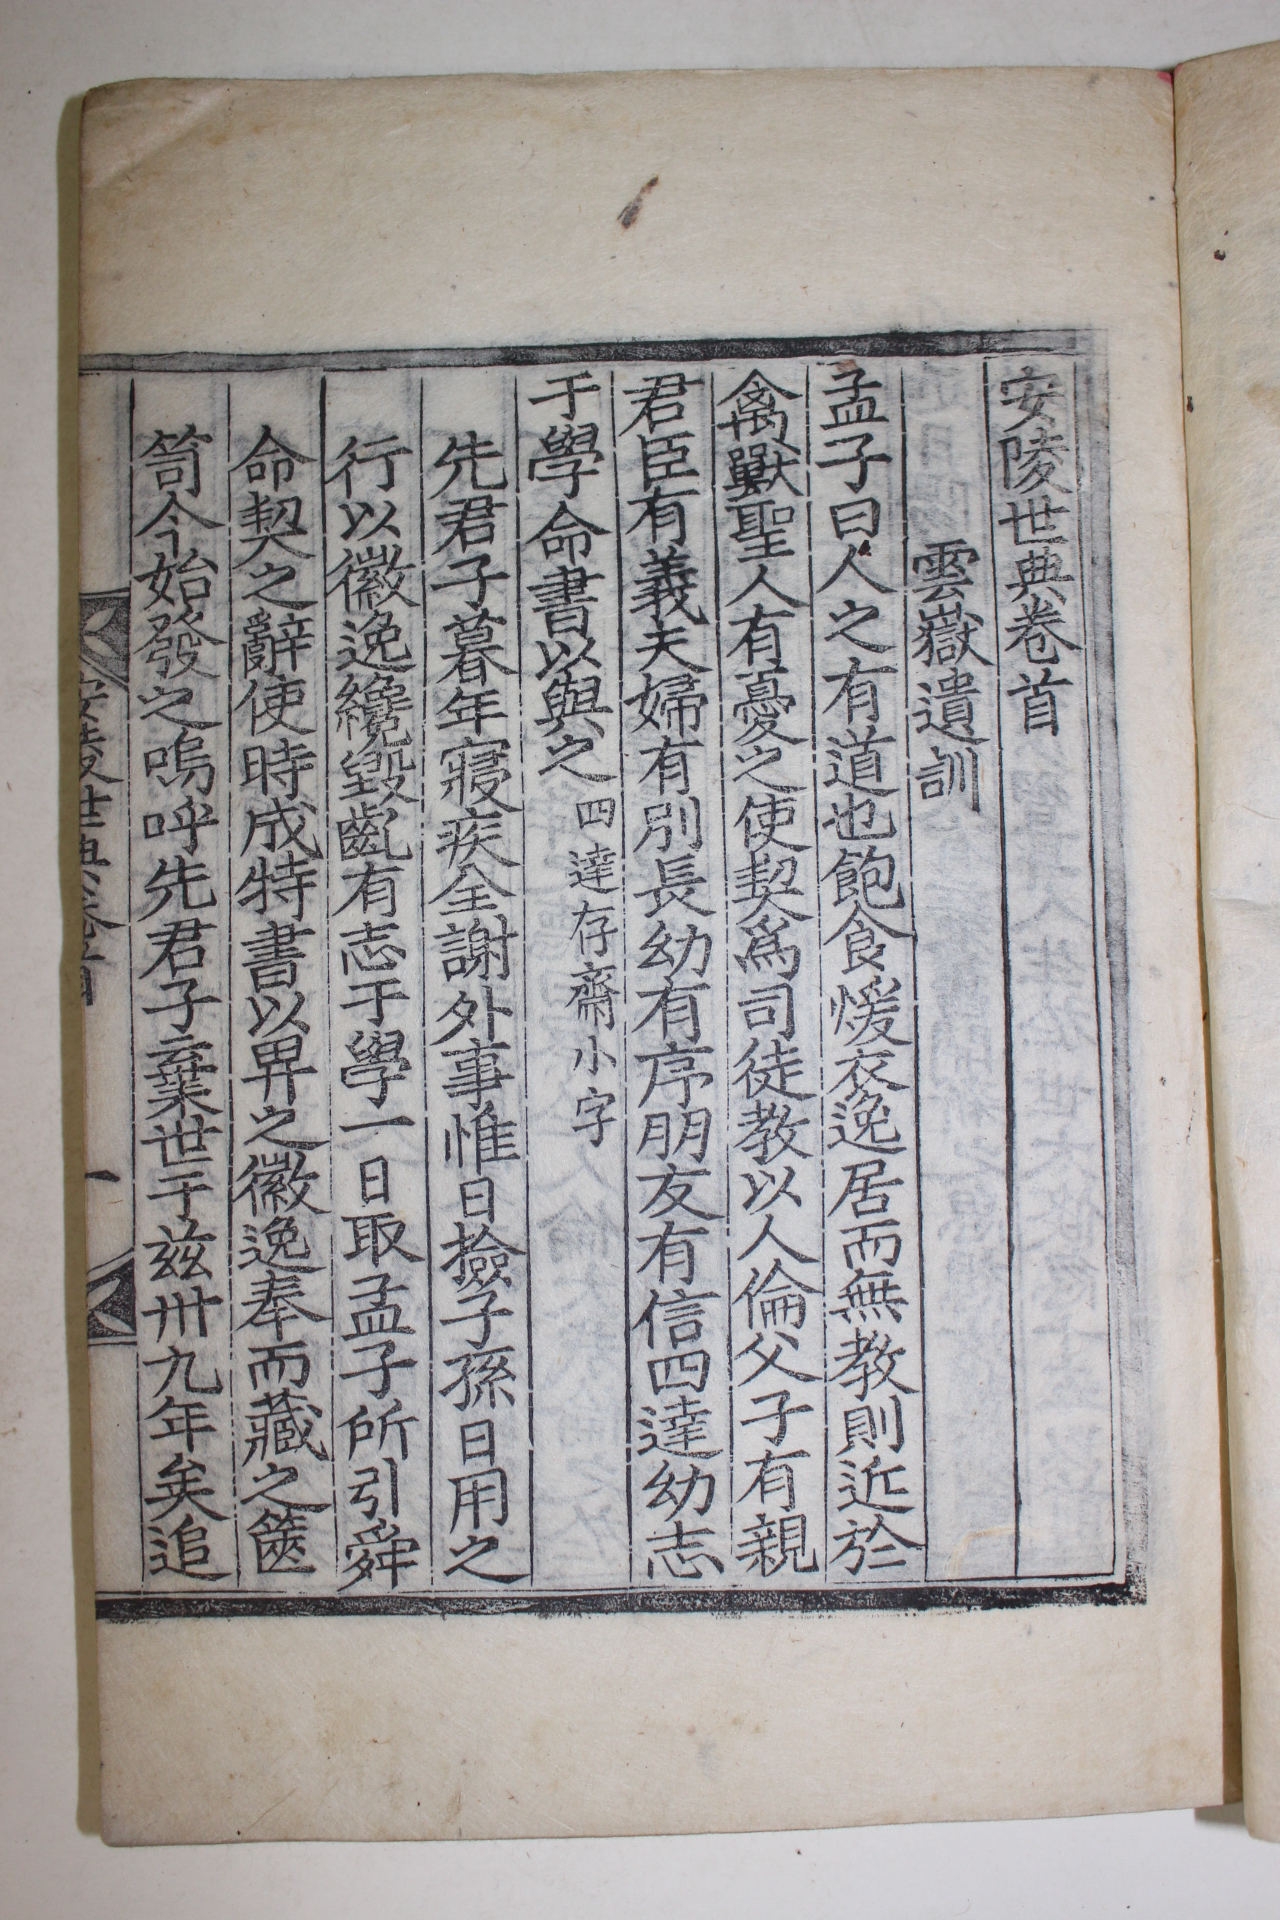 安陵世典卷首
雲嶽遺訓
孟子曰人之有道也飽食煖衣逸居而無教則近於
禽獸聖人有憂之使契爲司徒教以人倫父子有親
君臣有義夫婦有別長幼有序朋友有信四達幼志
于學命書以與之四達存齋小字
先君子暮年寢疾全謝外事惟日撿子孫日用之
行以徽逸纔毀齔有志于學一日取孟子所引舜
命契之辭使時成特書以畀之徽逸奉而藏之篋
笥今始發之嗚呼先君子棄世于玆卅九年矣追
安陵世典卷首
一